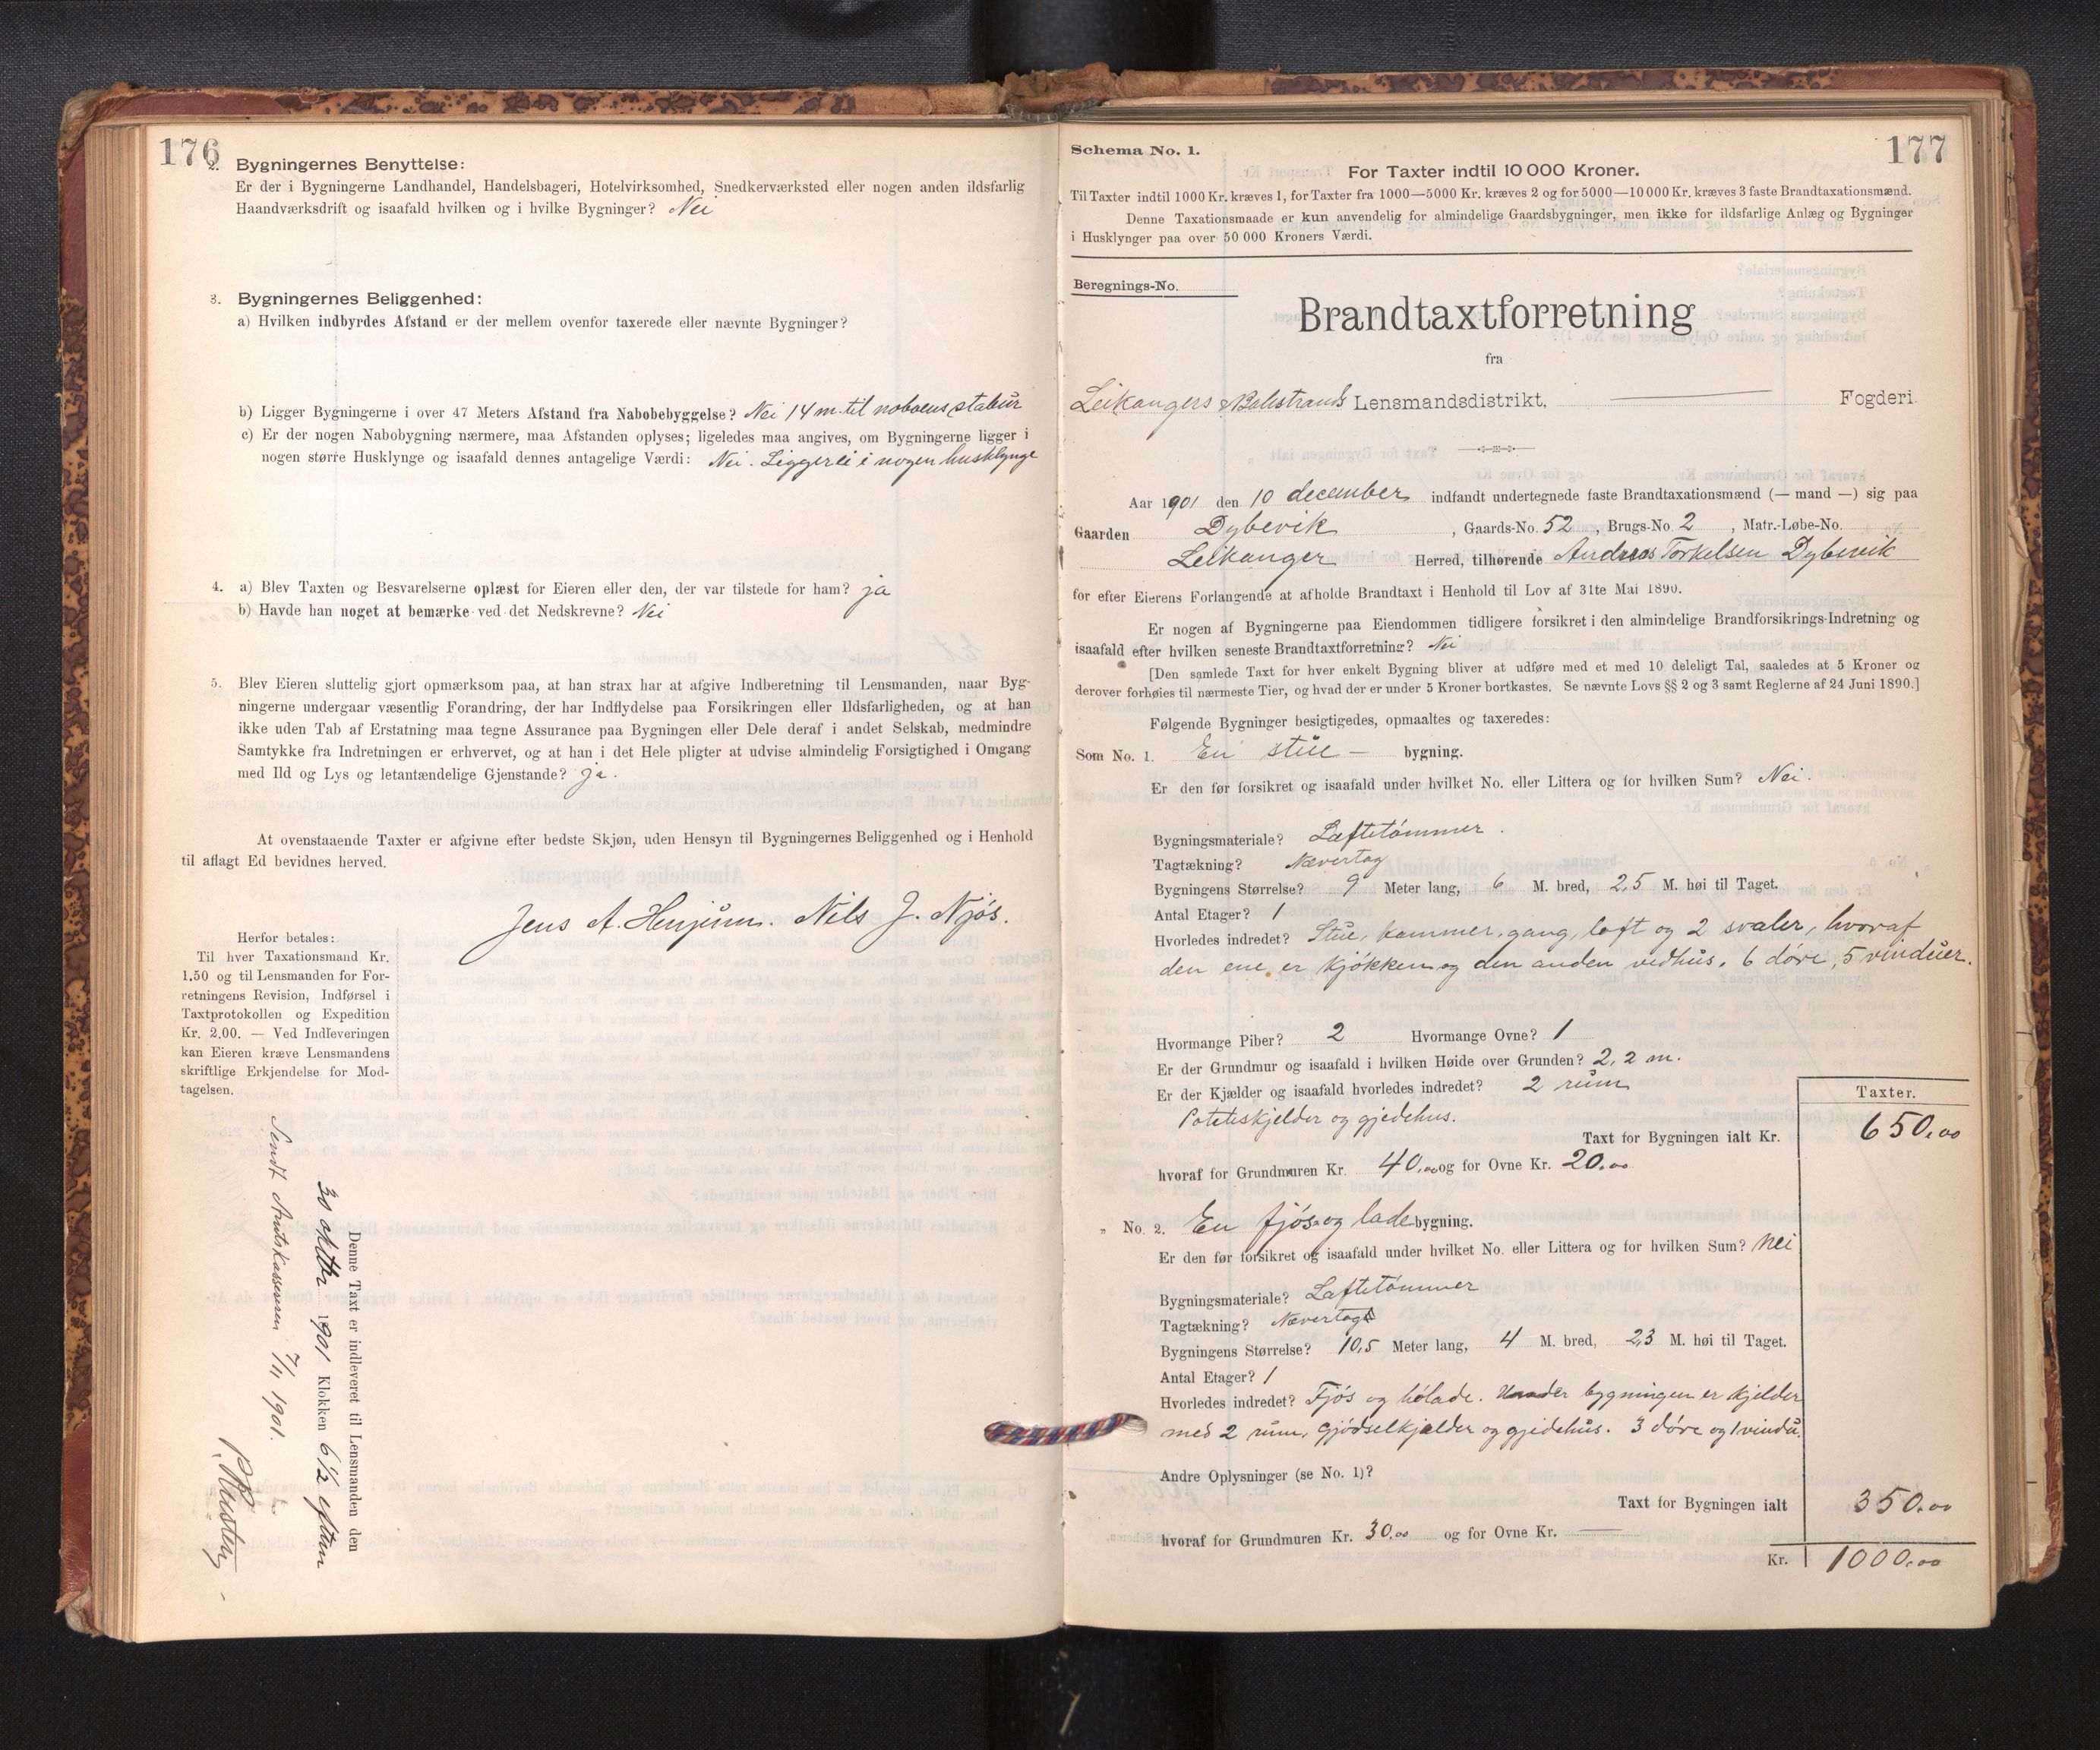 176
2. Bygningernes Benyttelse:
Er der i Bygningerne Landhandel, Handelsbageri, Hotelvirksomhed, Snedkerværksted eller nogen anden ildsfarlig
Haandværksdrift og isaafald hvilken og i hvilke Bygninger? Nei
3. Bygningernes Beliggenhed:
a) Hvilken indbyrdes Afstand er der mellem ovenfor taxerede eller nævnte Bygninger?
b) Ligger Bygningerne i over 47 Meters Afstand fra Nabobebyggelse? Nei 14 m. til naboens stabur
c) Er der nogen Nabobygning nærmere, maa Afstanden oplyses; ligeledes maa angives, om Bygningerne ligger i
nogen større Husklynge og isaafald dennes antagelige Værdi: Nei. Ligger ei i nogen husklynge
4. a) Blev Taxten og Besvarelserne oplæst for Eieren eller den, der var tilstede for ham? ja
b) Havde han noget at bemærke ved det Nedskrevne? Nei
5. Blev Eieren sluttelig gjort opmærksom paa, at han strax har at afgive Indberetning til Lensmanden, naar Byg-
ningerne undergaar væsentlig Forandring, der har Indflydelse paa Forsikringen eller Ildsfarligheden, og at han
ikke uden Tab af Erstatning maa tegne Assurance paa Bygningen eller Dele deraf i andet Selskab, medmindre
Samtykke fra Indretningen er erhvervet, og at han i det Hele pligter at udvise almindelig Forsigtighed i Omgang
med Ild og Lys og letantændelige Gjenstande? ja.
At ovenstaaende Taxter er afgivne efter bedste Skjøn, uden Hensyn til Bygningernes Beliggenhed og i Henhold
til aflagt Ed bevidnes herved.
Jens A. Henjum. Nils J. Njøs.
Herfor betales:
Til hver Taxationsmand Kr.
1.50 og til Lensmanden for For-
retningens Revision, Indførsel i
Taxtprotokollen og Expedition
Kr. 2.00. — Ved Indleveringen
kan Eieren kræve Lensmandens
skriftlige Erkjendelse for Mod-
tagelsen.
Denne Taxt er indleveret til Lensmanden den
30 oktbr 1901 Klokken 6 1/2 eftm
Sendt Amtskassereren 7/11 1901.
177
Schema No. 1.
For Taxter indtil 10 000 Kroner.
Til Taxter indtil 1000 Kr. kræves 1, for Taxter fra 1000—5000 Kr. kræves 2 og for 5000—10 000 Kr. kræves 3 faste Brandtaxationsmænd.
Denne Taxationsmaade er kun anvendelig for almindelige Gaardsbygninger, men ikke for ildsfarlige Anlæg og Bygninger
i Husklynger paa over 50 000 Kroners Værdi.
Beregnings-No.
Brandtaxtforretning
fra
Leikangers & Balestrands Lensmandsdistrikt, Fogderi
Aar 1901 den 10 december indfandt undertegnede faste Brandtaxationsmænd (— mand —) sig paa
Gaarden Dybevik, Gaards-No. 52, Brugs-No. 2, Matr.-Løbe-No.
Leikanger Herred, tilhørende Andreas Torkelsen Dybevik
for efter Eierens Forlangende at afholde Brandtaxt i Henhold til Lov af 31te Mai 1890.
Er nogen af Bygningerne paa Eiendommen tidligere forsikret i den almindelige Brandforsikrings-Indretning og
isaafald efter hvilken seneste Brandtaxtforretning? Nei
[Den samlede Taxt for hver enkelt Bygning bliver at udføre med et med 10 deleligt Tal, saaledes at 5 Kroner og
derover forhøies til nærmeste Tier, og hvad der er under 5 Kroner bortkastes. Se nævnte Lovs §§ 2 og 3 samt Reglerne af 24 Juni 1890.]
Følgende Bygninger besigtigedes, opmaaltes og taxeredes:
Som No. 1. En stue — bygning.
Er den før forsikret og isaafald under hvilket No. eller Littera og for hvilken Sum? Nei.
Bygningsmateriale? Laftetømmer.
Tagtækning? Nævertag
Bygningens Størrelse? 9 Meter lang, 6 M. bred, 2,5 M. høi til Taget.
Antal Etager? 1
Hvorledes indredet? Stue, kammer, gang, loft og 2 svaler, hvoraf
den ene er kjøkken og den anden vedhus. 6 døre, 5 vinduer.
Hvormange Piber? 2 Hvormange Ovne? 1
Er der Grundmur og isaafald i hvilken Høide over Grunden? 2,2 m.
Er der Kjælder og isaafald hvorledes indredet? 2 rum
Poteteskjelder og gjedehus.
Taxter.
Taxt for Bygningen ialt Kr. 650,00
hvoraf for Grundmuren Kr. 40,00 og for Ovne Kr. 20,00
„ No. 2. En fjøs- og lade bygning.
Er den før forsikret og isaafald under hvilket No. eller Littera og for hvilken Sum? Nei
Bygningsmateriale? Laftetømmer
Tagtækning? Nævertag
Bygningens Størrelse? 10,5 Meter lang, 4 M. bred, 2,3 M. høi til Taget.
Antal Etager? 1
Hvorledes indredet? Fjøs og hølade. Under bygningen er kjelder
med 2 rum, gjødselkjelder og gjedehus. 3 døre og 1 vindu.
Andre Oplysninger (se No. 1)?
Taxt for Bygningen ialt 350,00
hvoraf for Grundmuren Kr. 30,00 og for Ovne Kr. —
Kr. 1000,00